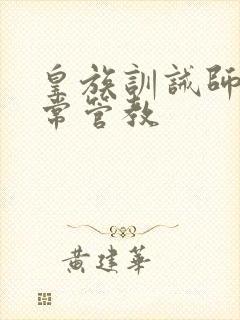 皇族訓誡師
常管教
黃建華